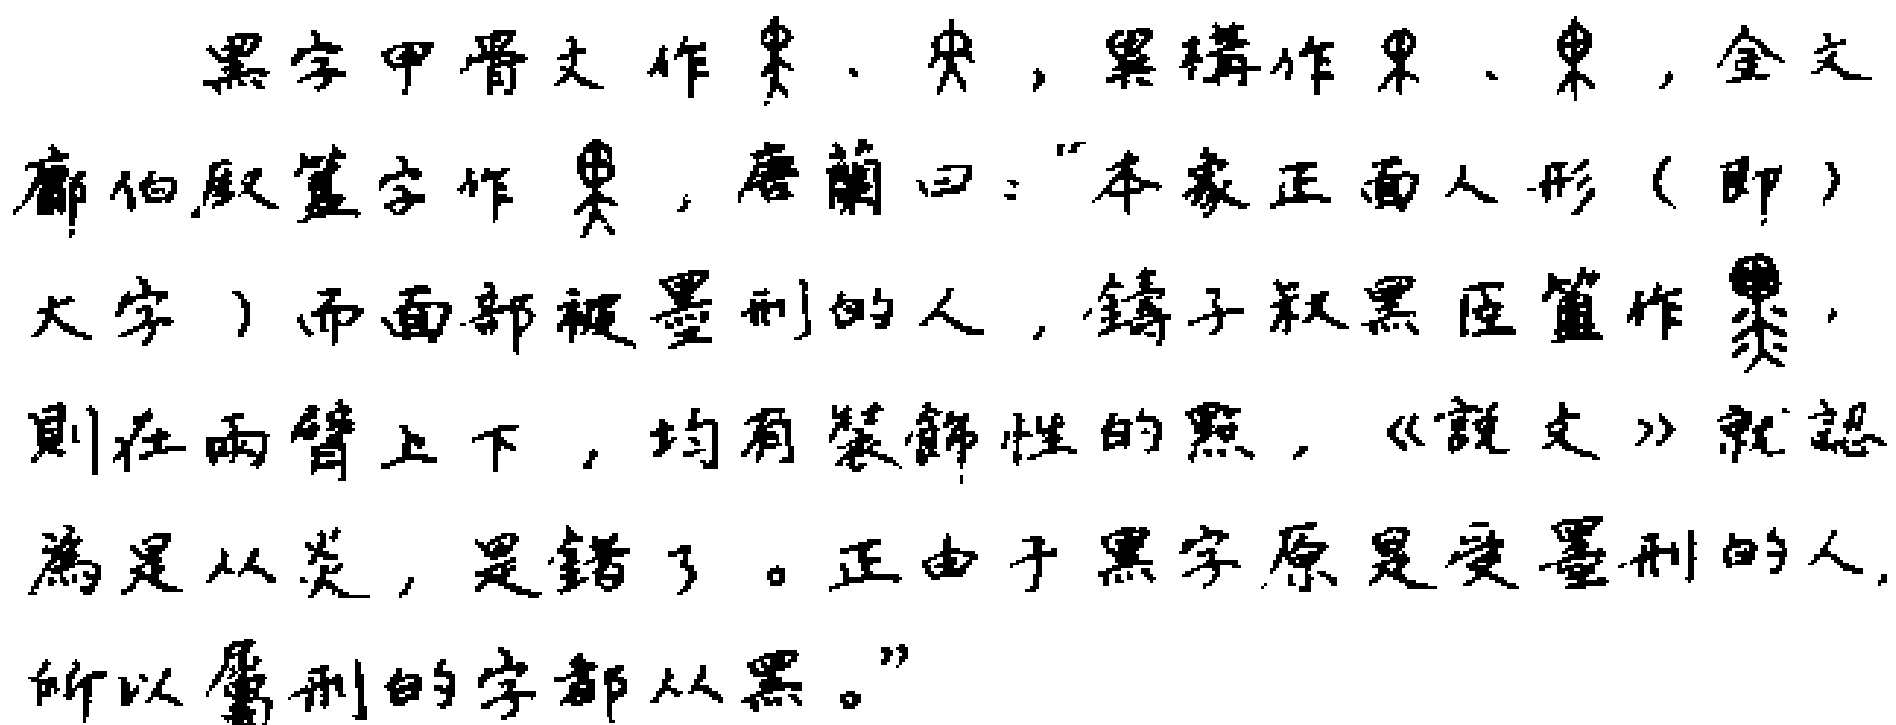 黑字甲骨文作、,異構作、,金文
鄘伯𣪘簋字作,唐蘭曰:“本象正面人形(即)
大字)而面部被墨刑的人,鑄子叔黑臣簠作,
則在兩臂上下,均有裝飾性的點,《說文》就認
為是从炎,是錯了。正由于黑字原是受墨刑的人,
所以屬刑的字都从黑。”